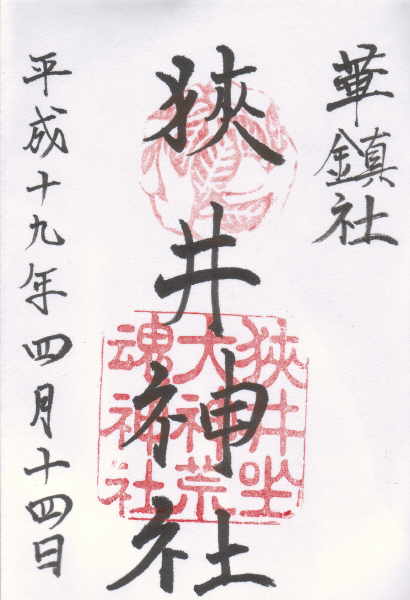 華鎮社
狹井神社
狹井坐
大神荒
魂神社
平成十九年四月十四日